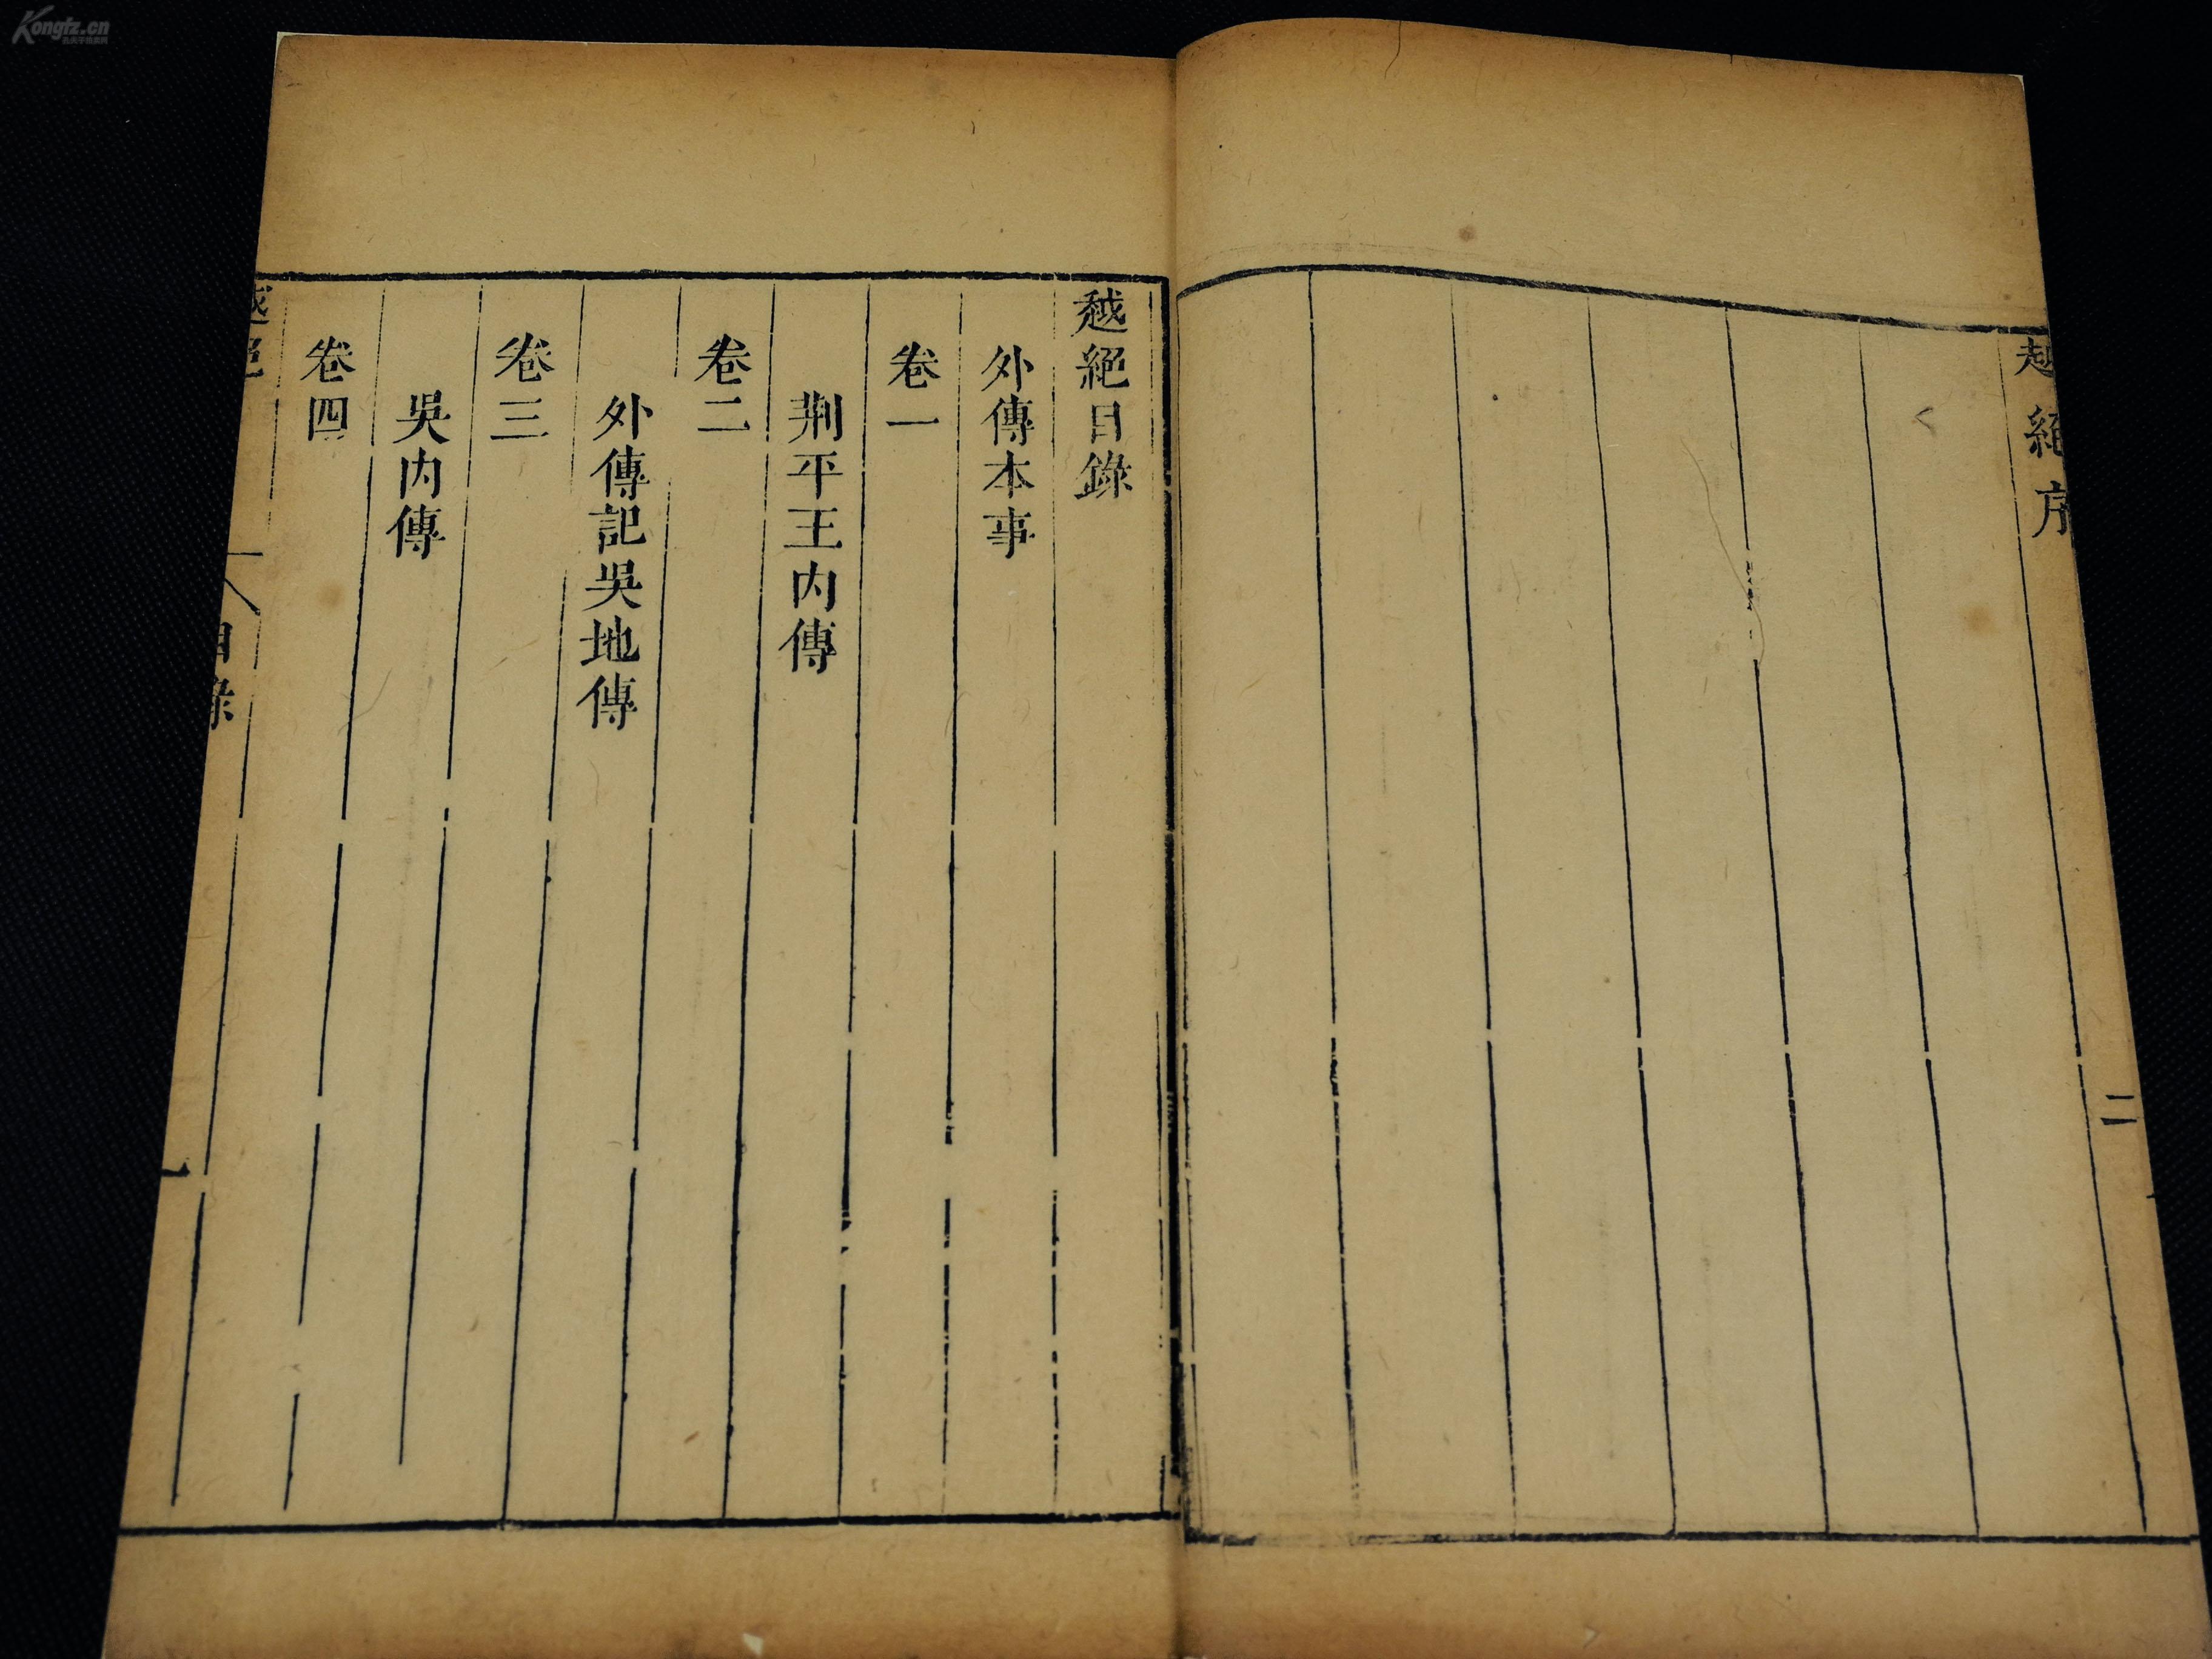 Kongfz.cn
越絕序
二
越絕目錄
外傳本事
卷一
荆平王內傳
卷二
外傳記吳地傳
卷三
吳內傳
卷四
越絕
目錄
一